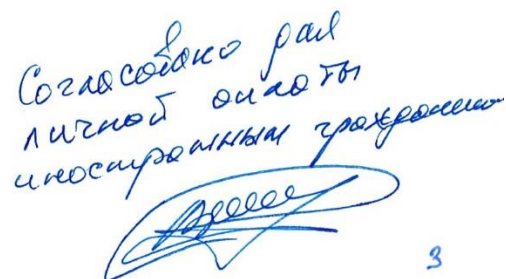 Согласовано для
личной оплаты
иностранным гражданином
3